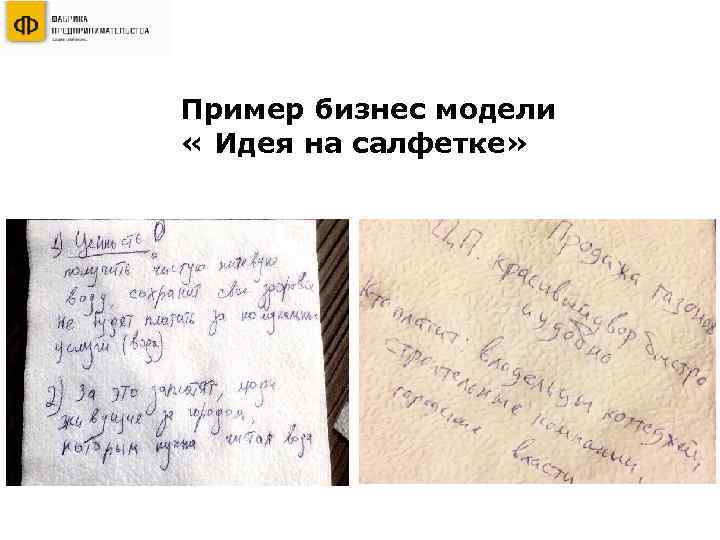 ФАБРИКА
ПРЕДПРИНИМАТЕЛЬСТВА
Пример бизнес модели
« Идея на салфетке»
1) Ценность
получить чистую питевую
воду, сохранит свое здоровье
не будет платить за комунальны
услуги (вода)
2) За это заплотят, люди
живущие за городом,
которым нужна читая вода
Продажа газонов
Ц.П. красивый двор быстро
и удобно
Кто платит: владельцы коттеджей,
строительные компании,
городские власти